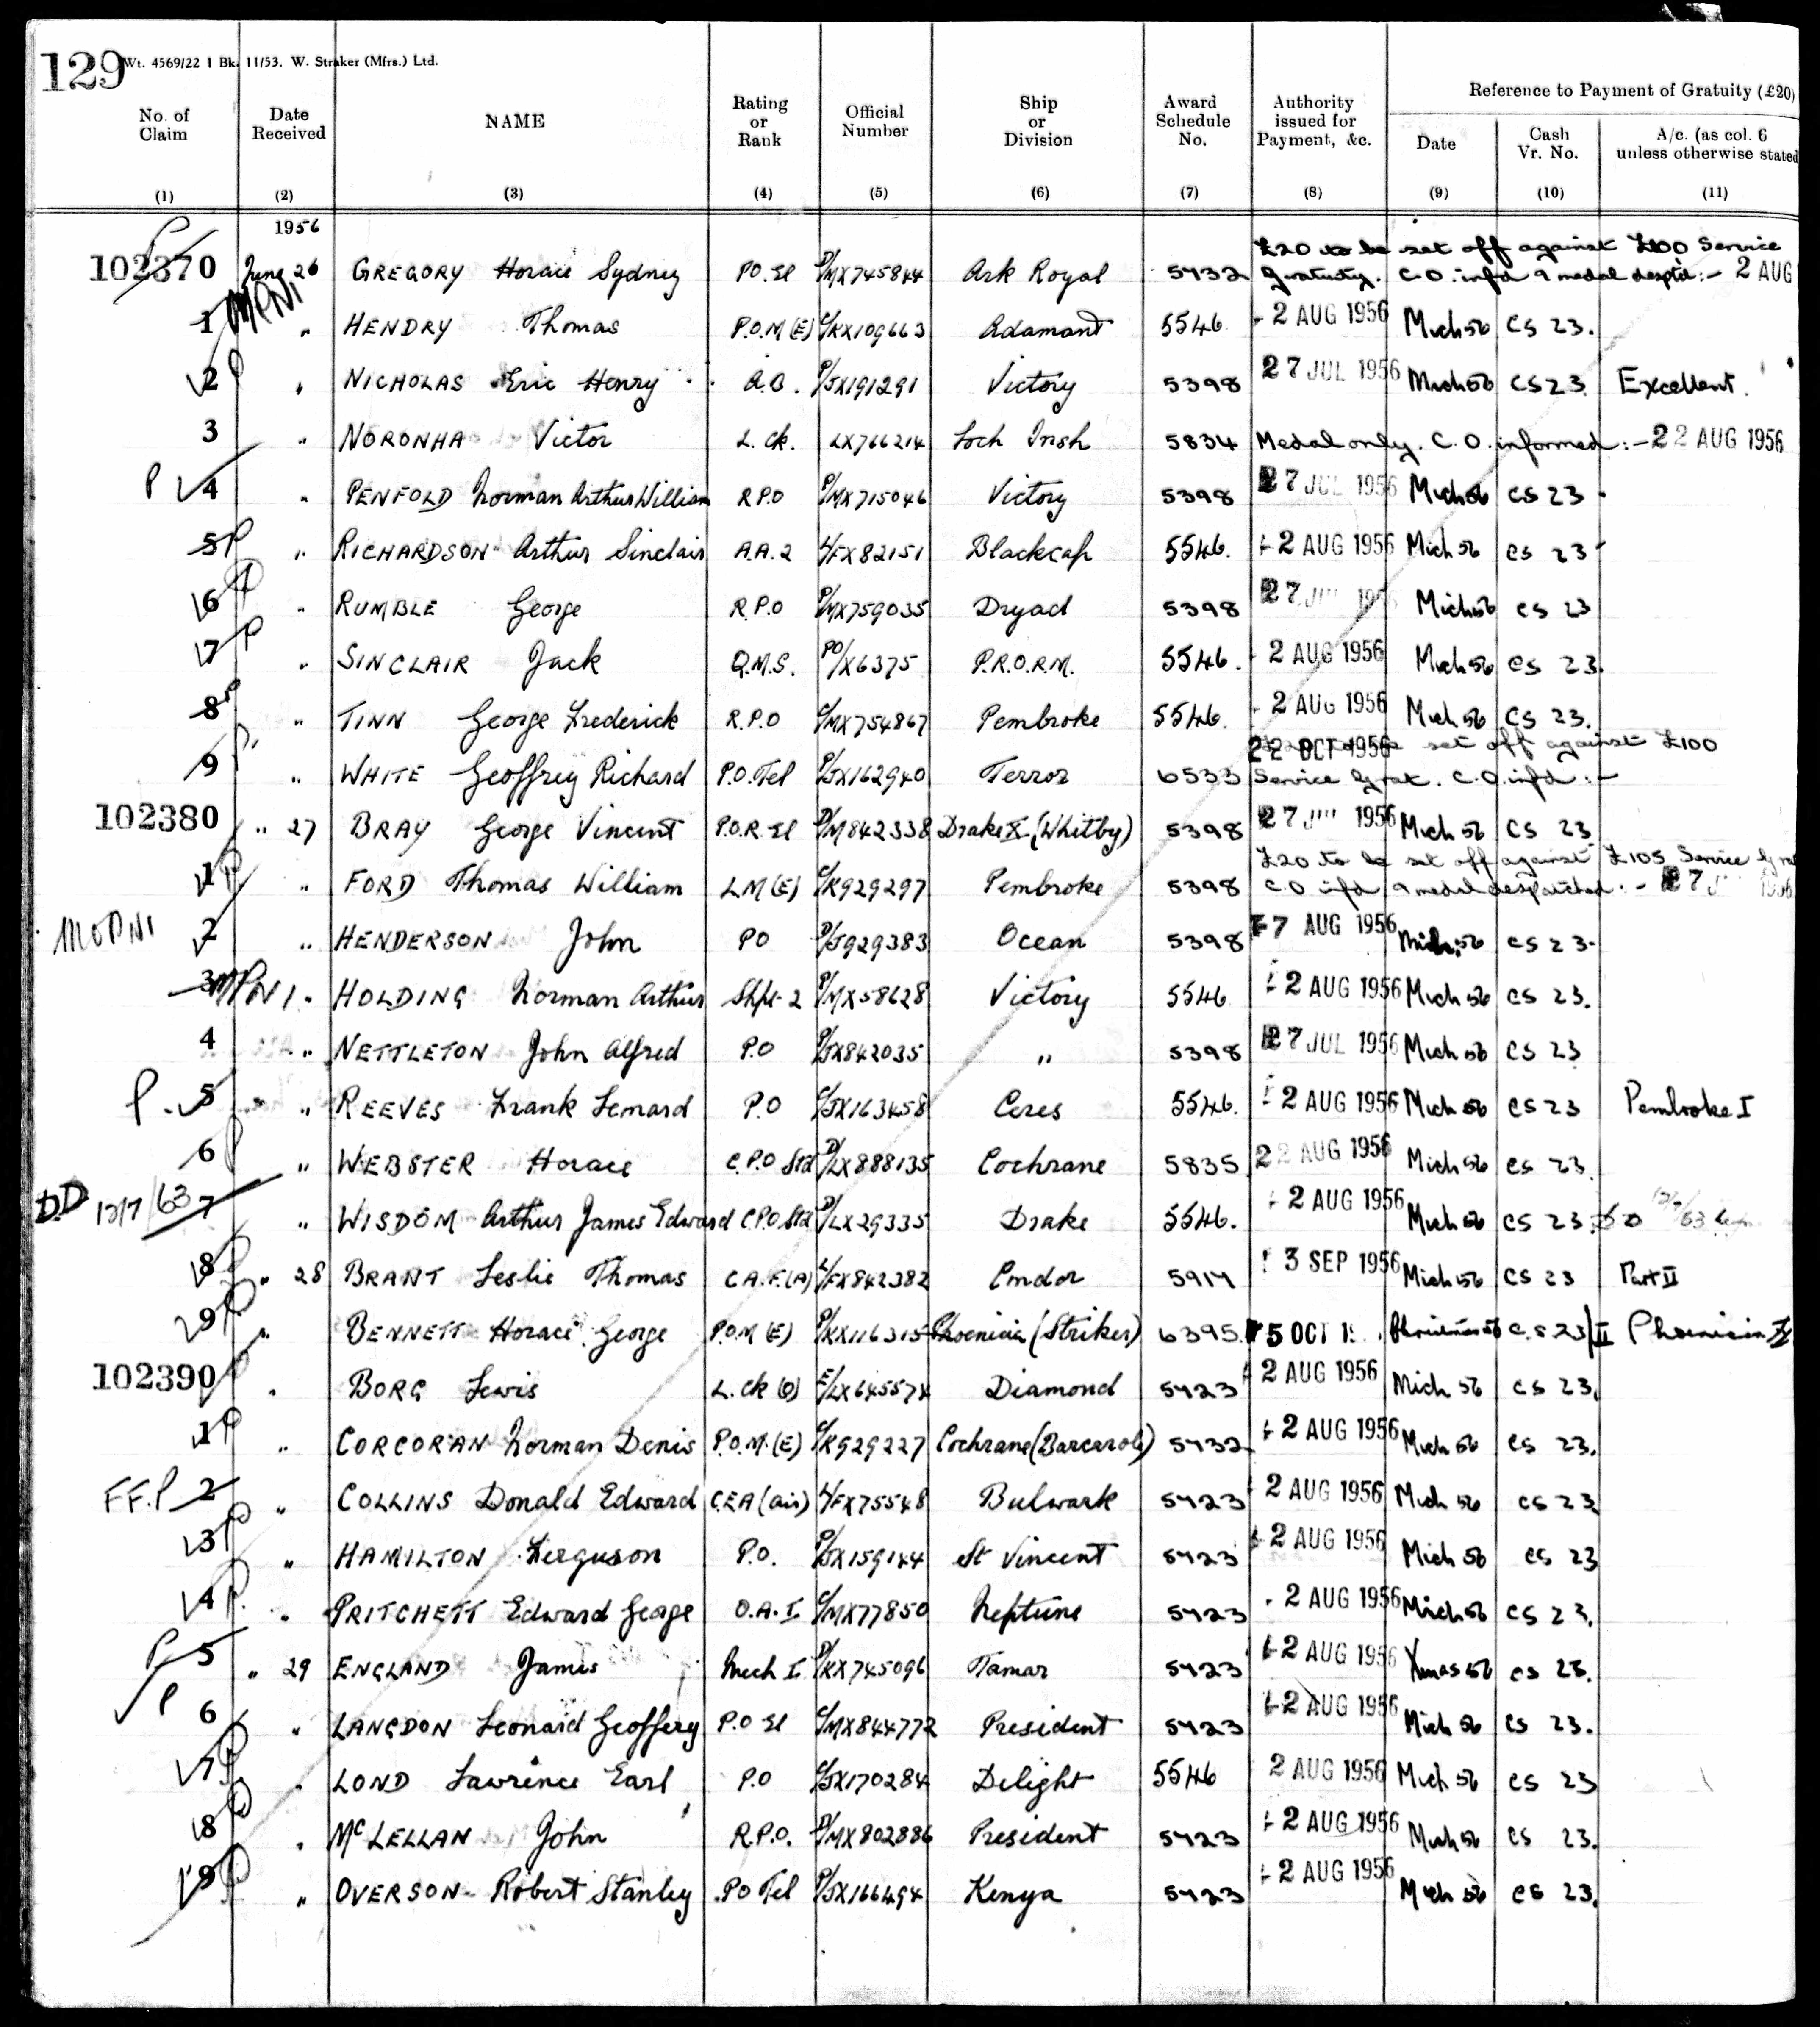 129 Wt. 4569/22 1 Bk. 11/53. W. Straker (Mfrs.) Ltd.
Reference to Payment of Gratuity (£20)
No. of Claim Date Received NAME Rating or Rank Official Number Ship or Division Award Schedule No. Authority issued for Payment, &c. Date Cash Vr. No. A/c. (as col. 6 unless otherwise stated
(1) (2) (3) (4) (5) (6) (7) (8) (9) (10) (11)
1956
£20 to be set off against £100 Service
102370 June 26 GREGORY Horace Sydney PO. El P/MX745844 Ark Royal 5432 gratuity. C.O. infd & medal despd:- 2 AUG
1 MPNI " HENDRY Thomas P.O.M(E) C/KX109663 Adamant 5546 2 AUG 1956 Mich 56 CS 23.
2 P " NICHOLAS Eric Henry A.B. P/JX191291 Victory 5398 27 JUL 1956 Mich 56 CS 23 Excellent.
3 " NORONHA Victor L. Ck. LX766214 Loch Insh 5834 Medal only. C.O. informed:- 22 AUG 1956
P 4 " PENFOLD Norman Arthur William R.P.O P/MX715046 Victory 5398 27 JUL 1956 Mich 56 CS 23
5 P " RICHARDSON Arthur Sinclair A.A.2 L/FX82151 Blackcap 5546. 2 AUG 1956 Mich 56 CS 23
6 P " RUMBLE George R.P.O P/MX759035 Dryad 5398 27 Mich 56 CS 23
7 P " SINCLAIR Jack Q.M.S. PO/X6375 P.R.O.R.M. 5546. 2 AUG 1956 Mich 56 CS 23.
8 P " TINN George Frederick R.P.O C/MX754867 Pembroke 5546. 2 AUG 1956 Mich 56 CS 23.
22 OCT 1956 set off against £100
9 P " WHITE Geoffrey Richard P.O.Tel P/JX162940 Terror 6533 Service Grat. C.O. infd:-
102380 " 27 BRAY George Vincent P.O.R.El D/M842338 Drake (Whitby) 5398 27 1956 Mich 56 CS 23
£20 to be set off against £105 Service
1 P " FORD Thomas William L.M(E) C/K929297 Pembroke 5398 C.O infd & medal despatched:- 27
MOPNI 2 " HENDERSON John PO P/J929383 Ocean 5398 7 AUG 1956 Mich 56 CS 23
3 MPNI " HOLDING Norman Arthur Shpt. 2 P/MX58628 Victory 5546 2 AUG 1956 Mich 56 CS 23.
4 " NETTLETON John Alfred P.O P/JX842035 " 5398 27 JUL 1956 Mich 56 CS 23
P. 5 " REEVES Frank Lenard P.O C/JX163458 Ceres 5546. 2 AUG 1956 Mich 56 CS 23 Pembroke I
6 P " WEBSTER Horace C.P.O Std D/LX888135 Cochrane 5835 22 AUG 1956 Mich 56 CS 23
DD 12/7/63 7 " WISDOM Arthur James Edward C.P.O. Std D/LX29335 Drake 5546. 2 AUG 1956 Mich 56 CS 23
8 P " 28 BRANT Leslie Thomas C.A.F.(A) L/FX842382 Condor 5914 3 SEP 1956 Mich 56 CS 23 Part II
9 P " BENNETT Horace George P.O.M(E) P/KX116315 Phoenicia (Striker) 6395. 5 OCT Christmas 56 C.S 23/II Phoenicia
102390 " BORG Lewis L. Ck (O) E/LX645574 Diamond 5423 2 AUG 1956 Mich 56 CS 23.
1 P " CORCORAN Norman Denis P.O.M.(E) C/K929227 Cochrane (Barcarole) 5432 2 AUG 1956 Mich 56 CS 23.
F.F.P 2 " COLLINS Donald Edward C.E.A (air) L/FX75548 Bulwark 5423 2 AUG 1956 Mich 56 CS 23
3 P " HAMILTON Ferguson P.O. P/JX159144 St Vincent 5423 2 AUG 1956 Mich 56 CS 23
4 P. " PRITCHETT Edward George O.A.I C/MX77850 Neptune 5423 2 AUG 1956 Mich 56 CS 23.
P 5 " 29 ENGLAND James Mech I P/KX745096 Tamar 5423 2 AUG 1956 Xmas 56 CS 23.
P 6 " LANGDON Leonard Geoffery P.O El C/MX844772 President 5423 2 AUG 1956 Mich 56 CS 23.
7 P " LOND Lawrence Earl P.O C/JX170284 Delight 5546 2 AUG 1956 Mich 56 CS 23
8 P " McLELLAN John R.P.O. P/MX802886 President 5423 2 AUG 1956 Mich 56 CS 23.
9 P " OVERSON Robert Stanley PO Tel P/JX166494 Kenya 5423 2 AUG 1956 Mich 56 CS 23.